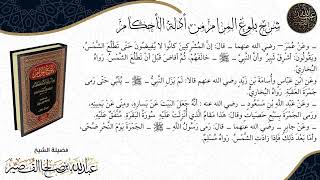 شرح بلوغ المرام من أدلة الأحكام
ـ وَعَنْ عُمَرَ ـ رضي الله عنهما ـ قَالَ: إِنَّ الْمُشْرِكِينَ كَانُوا لَا يُفِيضُونَ حَتَّى تَطْلُعَ الشَّمْسُ،
وَيَقُولُونَ: أَشْرِقْ ثَبِيرُ وَأَنَّ النَّبِيَّ ـ ﷺ ـ خَالَفَهُمْ، ثُمَّ أَفَاضَ قَبْلَ أَنْ تَطْلُعَ الشَّمْسُ. رَوَاهُ
الْبُخَارِيُّ.
ـ وَعَنِ ابْنِ عَبَّاسٍ وَأُسَامَةَ بْنِ زَيْدٍ ـ رضي الله عنهم قالا: لَمْ يَزَلِ النَّبِيُّ ـ ﷺ ـ يُلَبِّي حَتَّى رَمَى
جَمْرَةَ الْعَقَبَةِ. رَوَاهُ الْبُخَارِيُّ.
ـ وَعَنْ عَبْدِ اللَّهِ بْنِ مَسْعُودٍ ـ رضي الله عنه ـ: أَنَّهُ جَعَلَ الْبَيْتَ عَنْ يَسَارِهِ، وَمِنًى عَنْ يَمِينِهِ،
وَرَمَى الْجَمْرَةَ بِسَبْعِ حَصَيَاتٍ وَقَالَ: هَذَا مَقَامُ الَّذِي أُنْزِلَتْ عَلَيْهِ سُورَةُ الْبَقَرَةِ. مُتَّفَقٌ عَلَيْهِ.
ـ وَعَنْ جَابِرٍ ـ رضي الله عنه ـ قَالَ: رَمَى رَسُولُ اللَّهِ ـ ﷺ ـ الْجَمْرَةَ يَوْمَ النَّحْرِ ضُحًى،
وَأَمَّا بَعْدَ ذَلِكَ فَإِذَا زَادَتِ الشَّمْسُ. رَوَاهُ مُسْلِمٌ.
فضيلة الشيخ
عبدالله بن صالح القصير